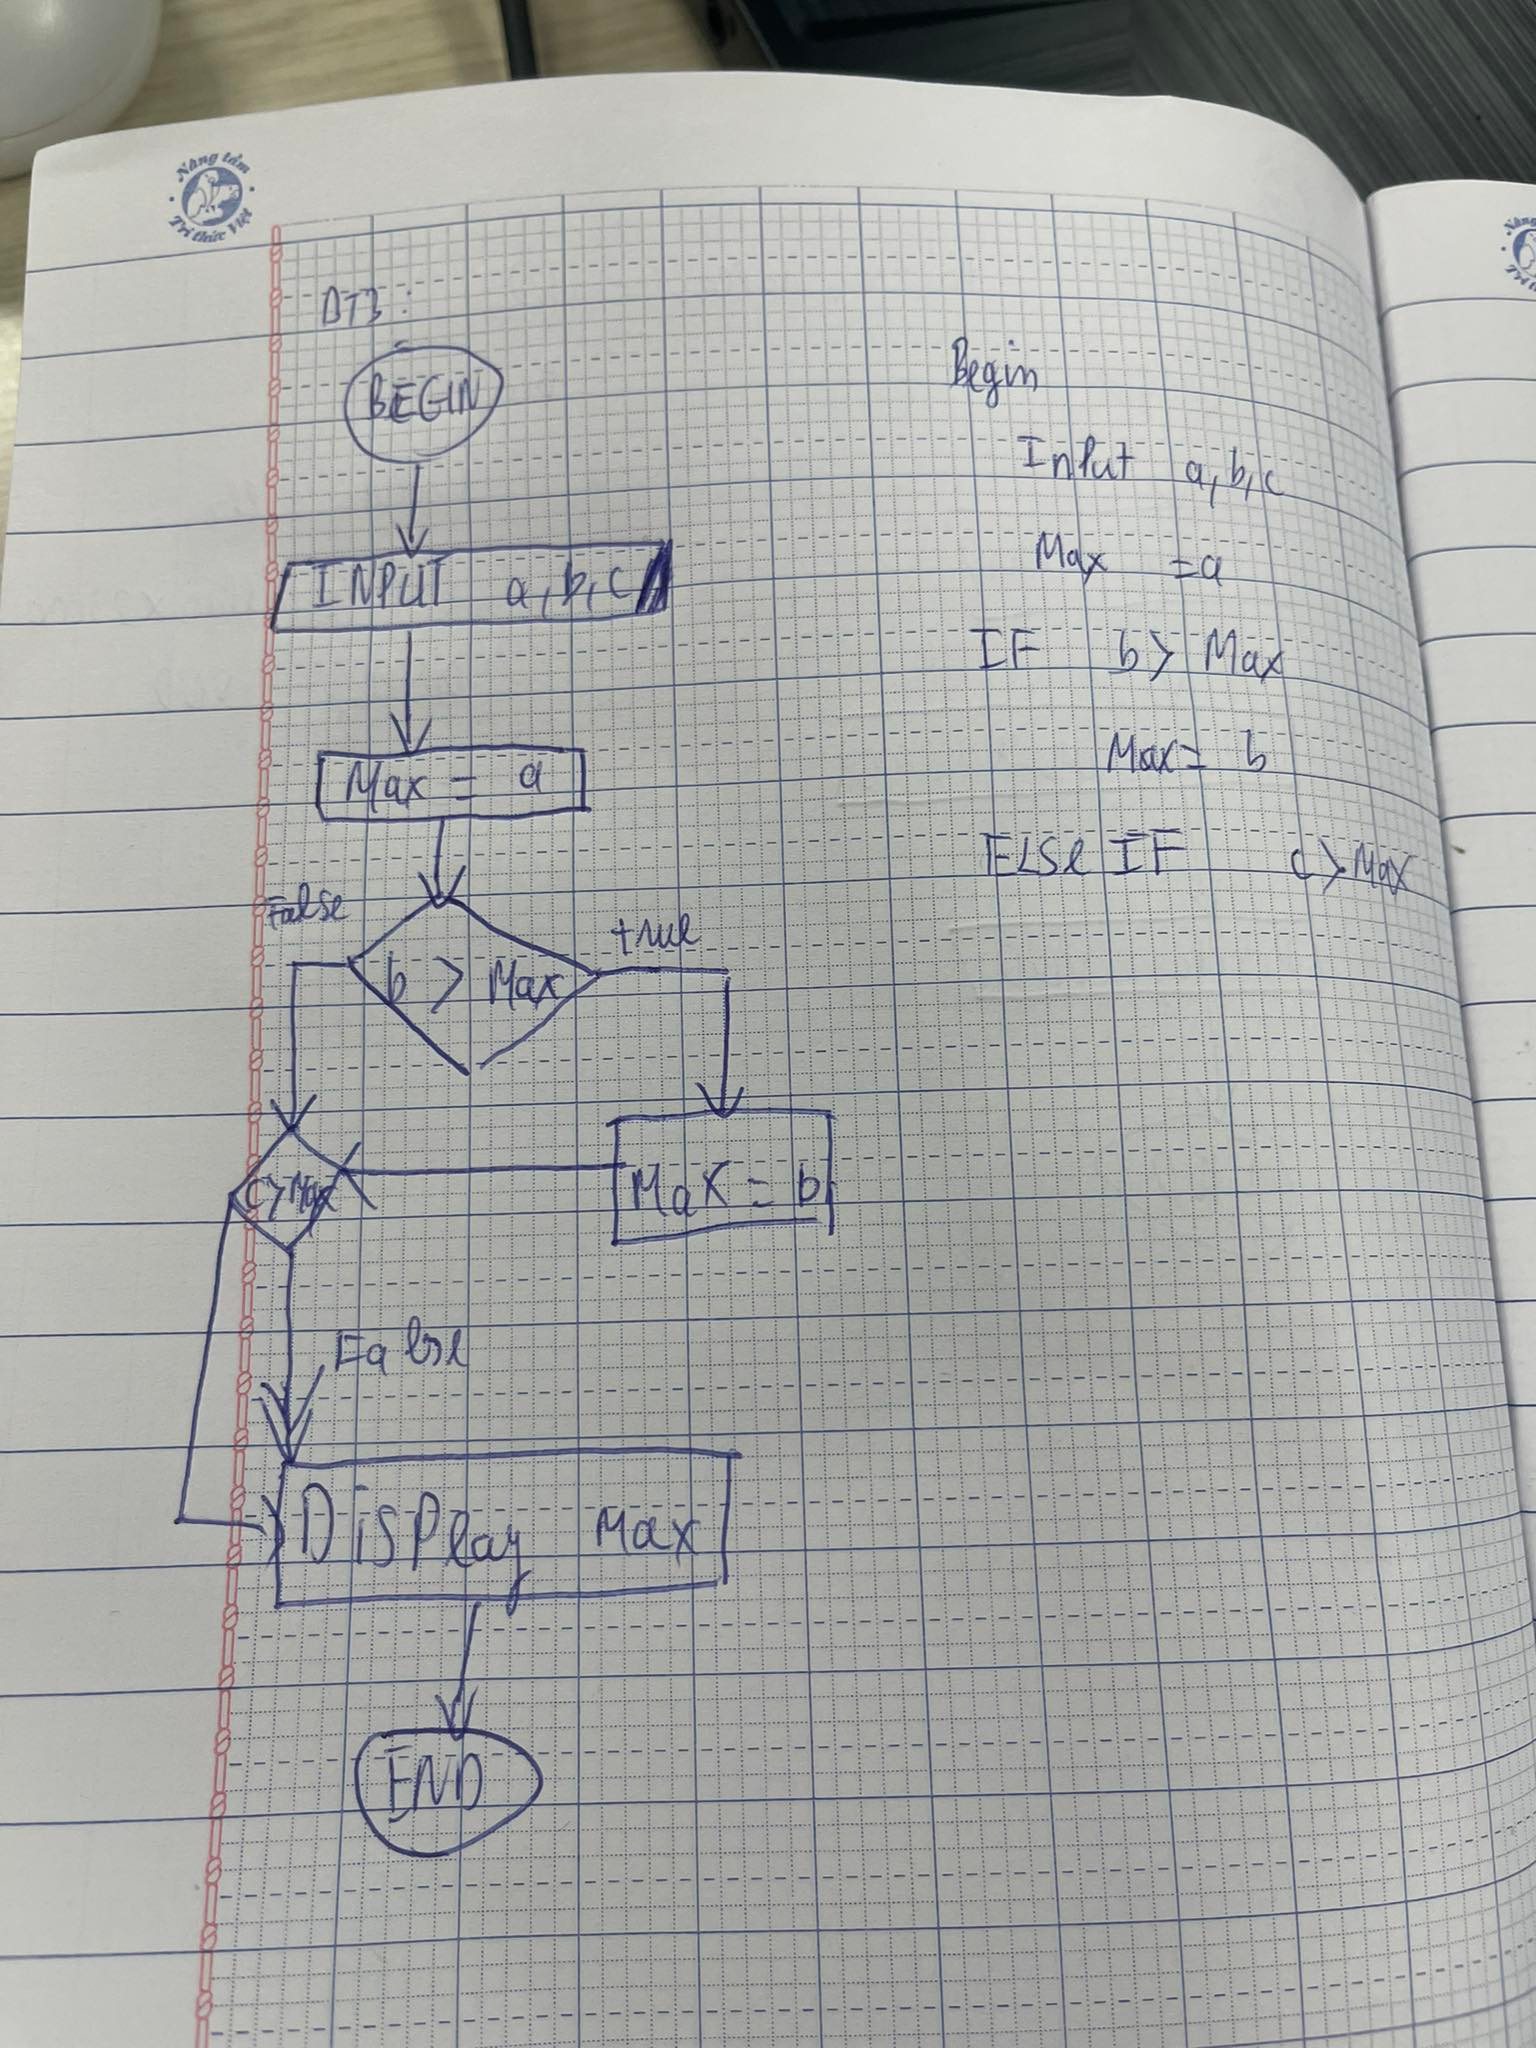 Nâng tầm
Tri thức Việt
BT3:
BEGIN
INPUT a, b, c
Max = a
False
true
b > Max
c > Max
Max = b
False
Display Max
END
Begin
Input a, b, c
Max = a
IF b > Max
Max = b
ELSE IF c > Max